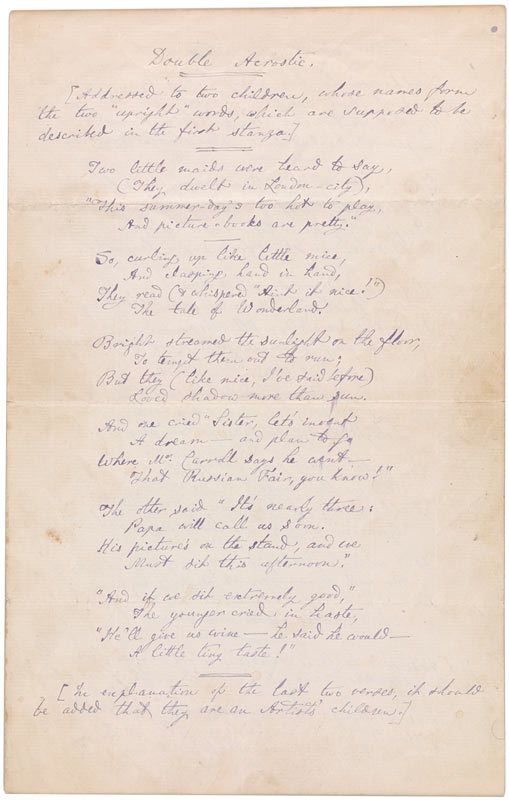 Double Acrostic.
[Addressed to two children, whose names form
the two "upright" words, which are supposed to be
described in the first stanza.]
Two little maids were heard to say,
(They dwelt in London-city),
"This summer-day's too hot to play,
And picture-books are pretty."
So, curling up like little mice,
And clasping hand in hand,
They read (& whispered "Ain't it nice!")
The tale of Wonderland.
Bright streamed the sunlight on the floor,
To tempt them out to run;
But they (like mice, I've said before)
Loved shadow more than sun.
And one cried "Sister, let's invent
A dream — and plan to go
Where Mr. Carroll says he went —
That Russian Fair, you know!"
The other said "It's nearly three:
Papa will call us soon.
His picture's on the stand, and we
Must sit this afternoon."
"And if we sit extremely good,"
The younger cried in haste,
"He'll give us wine — he said he would —
A little tiny taste!"
[In explanation of the last two verses, it should
be added that they are an Artist's children.]